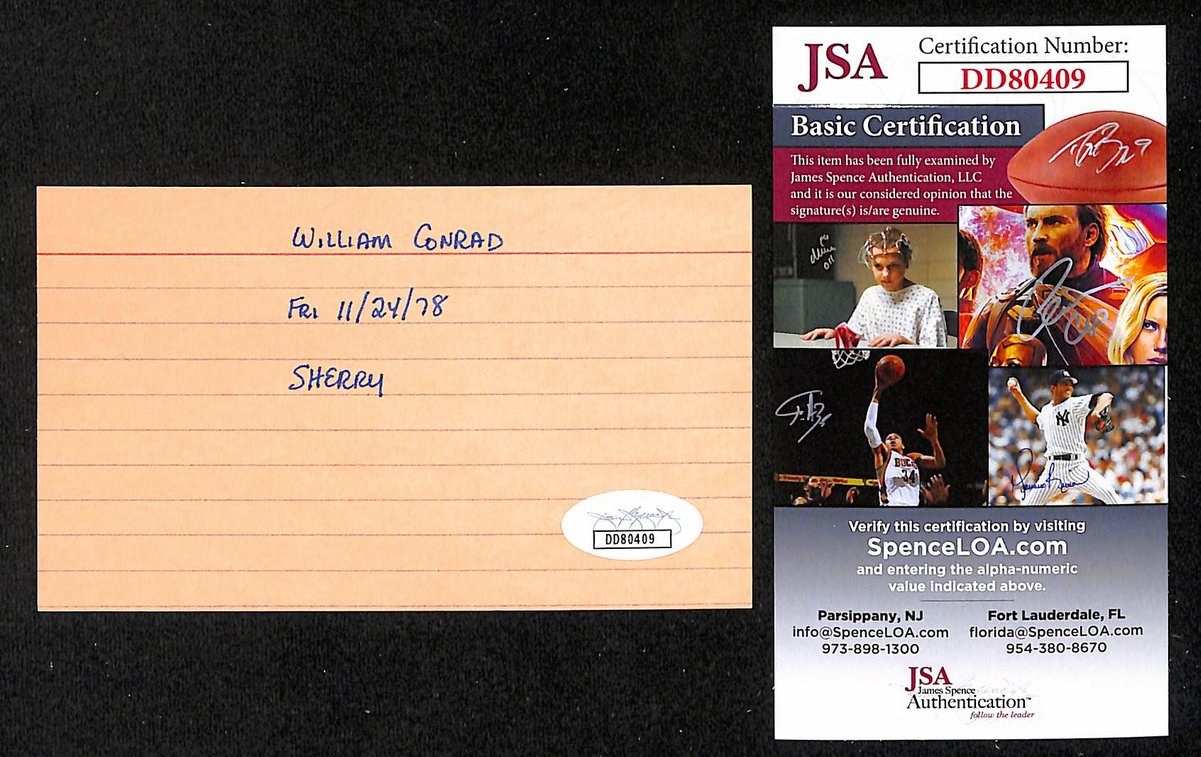 William Conrad
Fri 11/24/78
Sherry
DD80409
JSA
Certification Number:
DD80409
Basic Certification
This item has been fully examined by
James Spence Authentication, LLC
and it is our considered opinion that the
signature(s) is/are genuine.
BUCKS
34
NY
Verify this certification by visiting
SpenceLOA.com
and entering the alpha-numeric
value indicated above.
Parsippany, NJ
info@SpenceLOA.com
973-898-1300
Fort Lauderdale, FL
florida@SpenceLOA.com
954-380-8670
JSA
James Spence
Authentication™
follow the leader